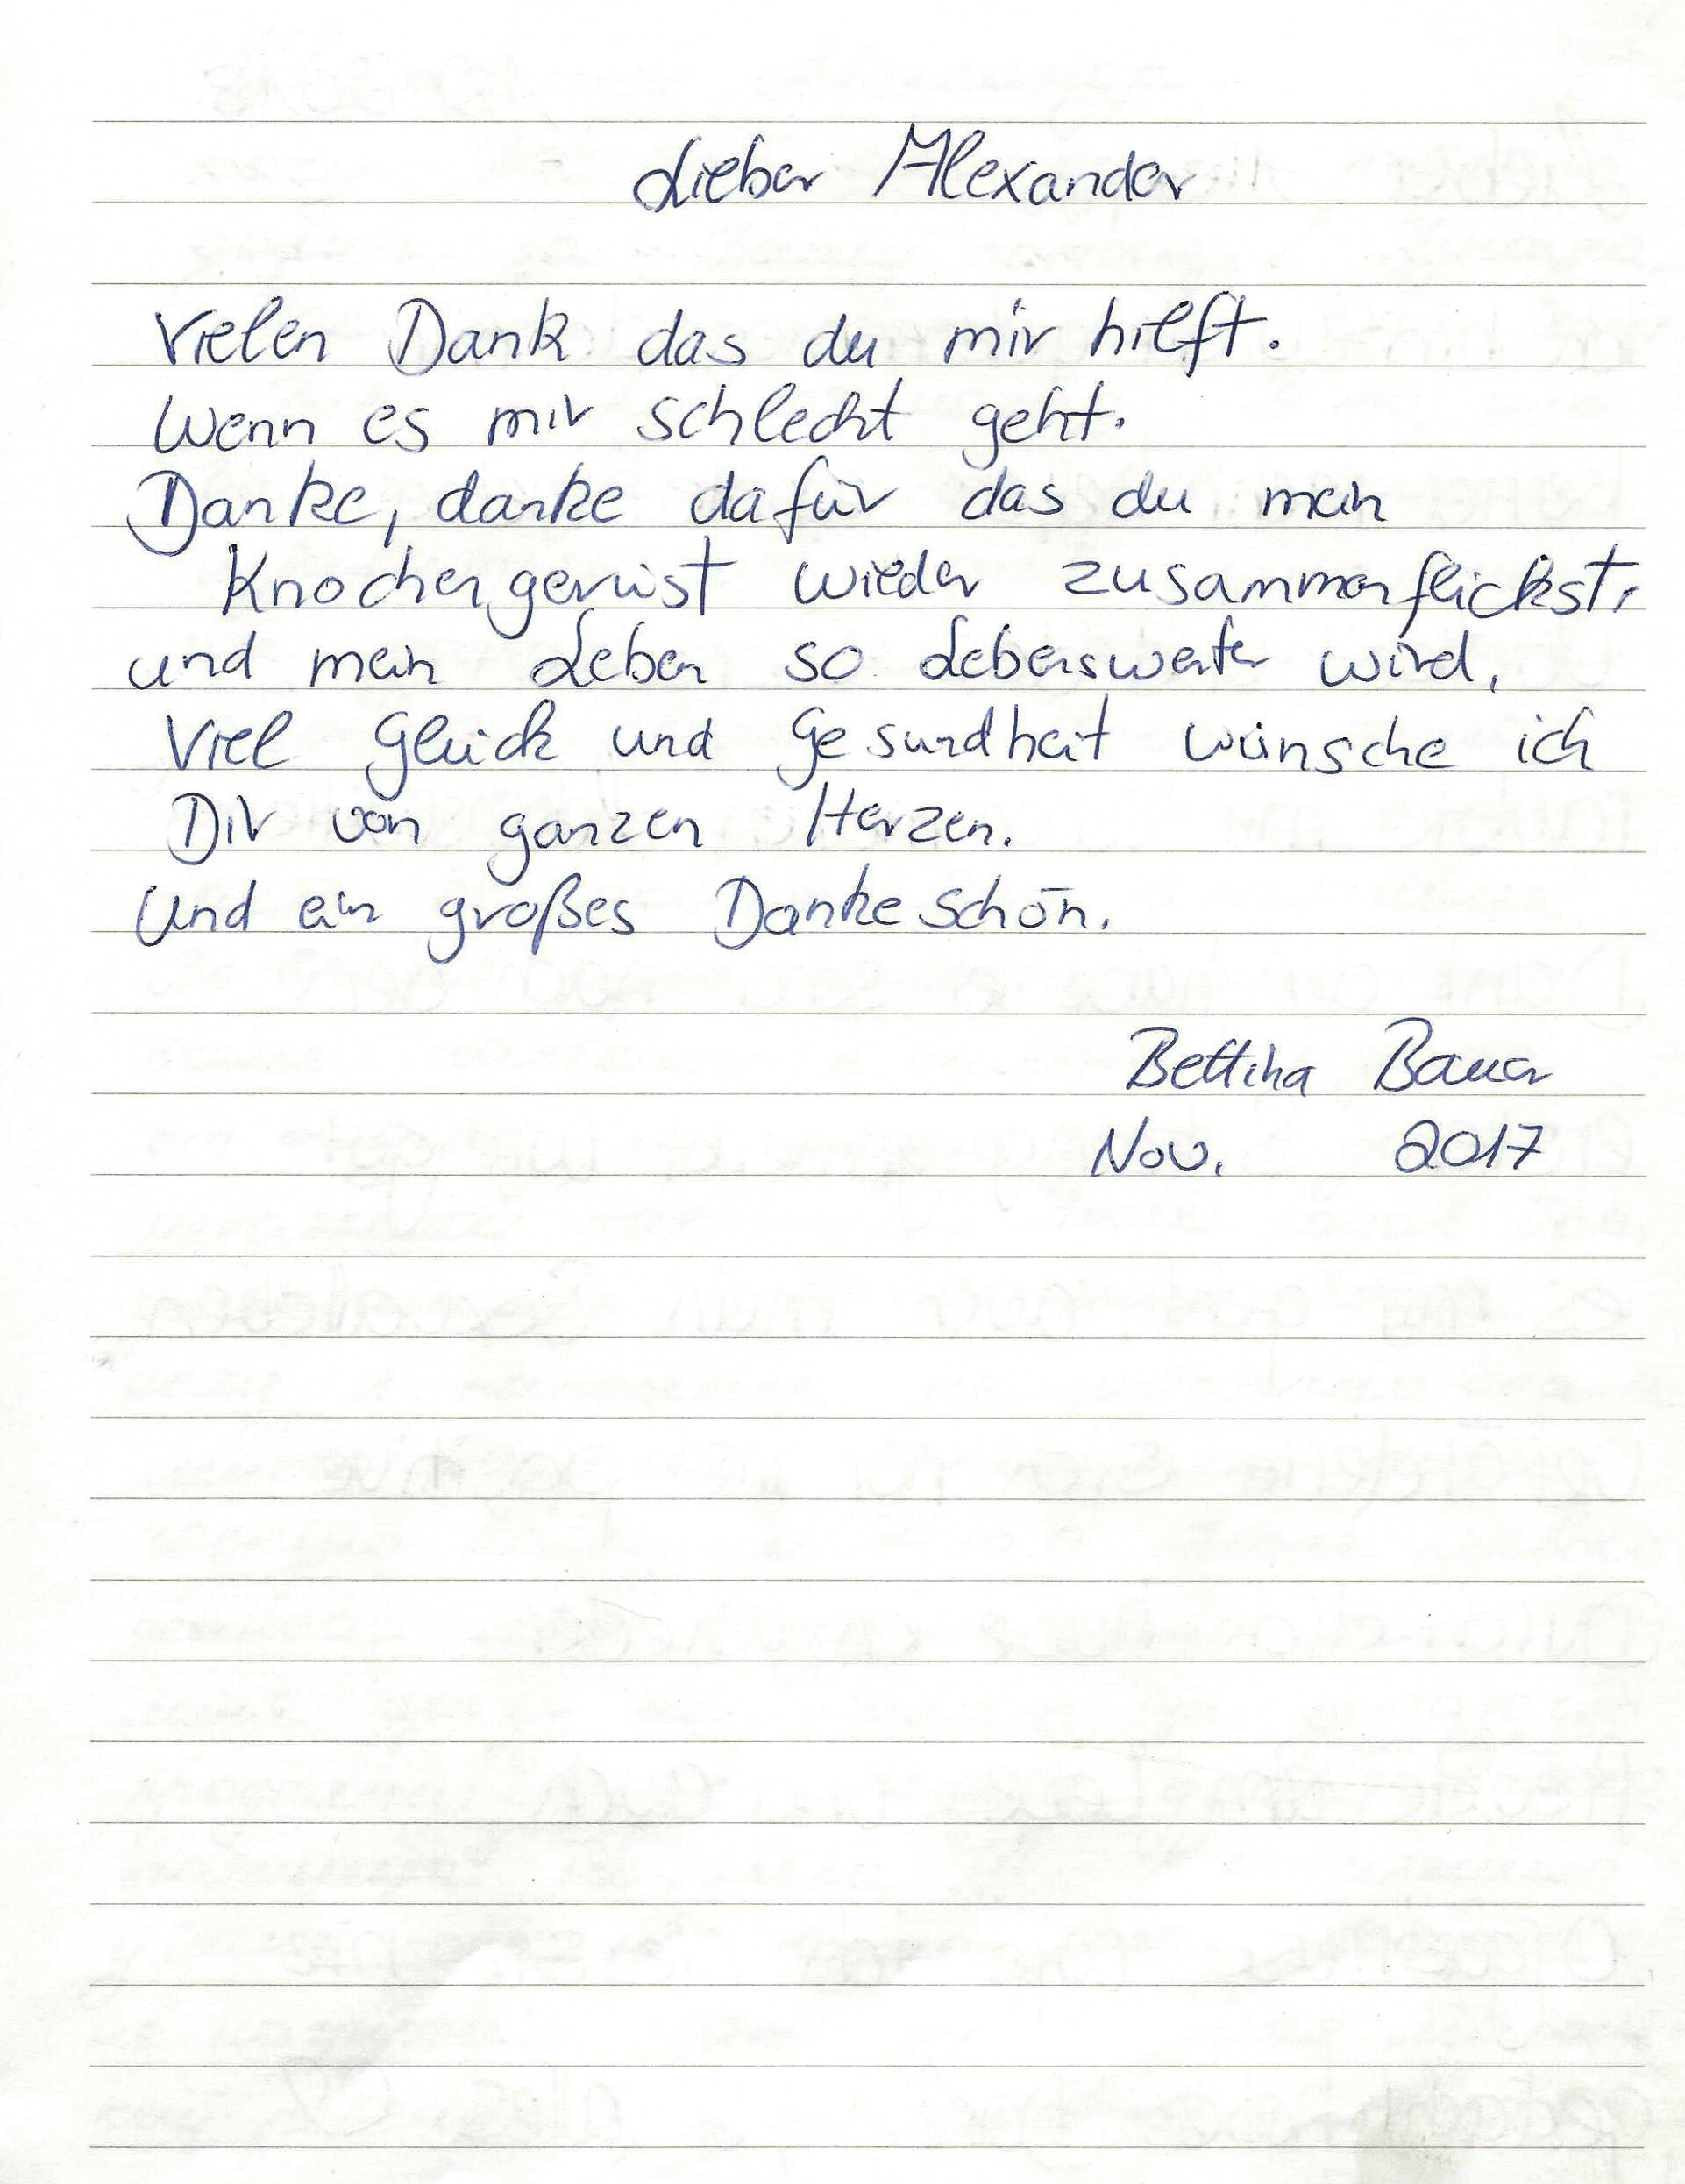 Lieber Alexander
Vielen Dank das du mir hilft.
Wenn es mir schlecht geht.
Danke, danke dafür das du mein
Knochengerüst wieder zusammenflickst,
und mein Leben so Lebenswerter wird.
Viel Glück und Gesundheit wünsche ich
Dir von ganzen Herzen.
Und ein großes Dankeschön.
Bettina Bauer
Nov. 2017